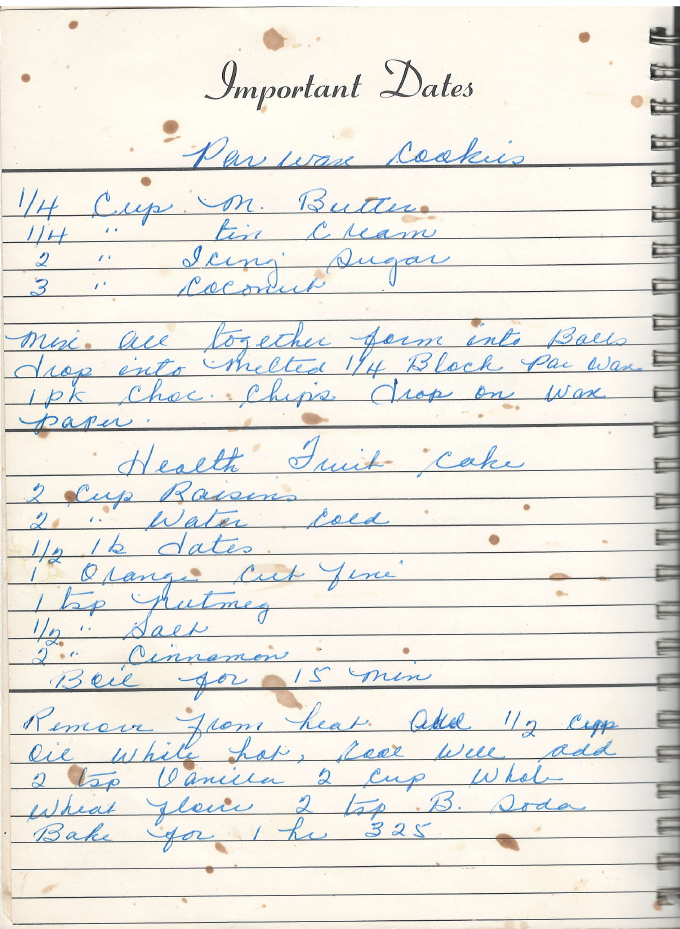 Important Dates
Par wax Cookies
1/4 Cup M. Butter
1/4 " tin Cream
2 " Icing Sugar
3 " Coconut
Mix all together form into Balls
drop into melted 1/4 Block Par Wax
1 pk Choc. Chips drop on Wax
paper.
Health Fruit Cake
2 Cup Raisins
2 " Water Cold
1/2 lb dates
1 Orange cut fine
1 tsp Nutmeg
1/2 " Salt
2 " Cinnamon
Boil for 15 min
Remove from heat. Add 1/2 cup
oil while hot, Cool Well add
2 tsp Vanilla 2 cup Whole
Wheat flour 2 tsp B. Soda
Bake for 1 hr 325